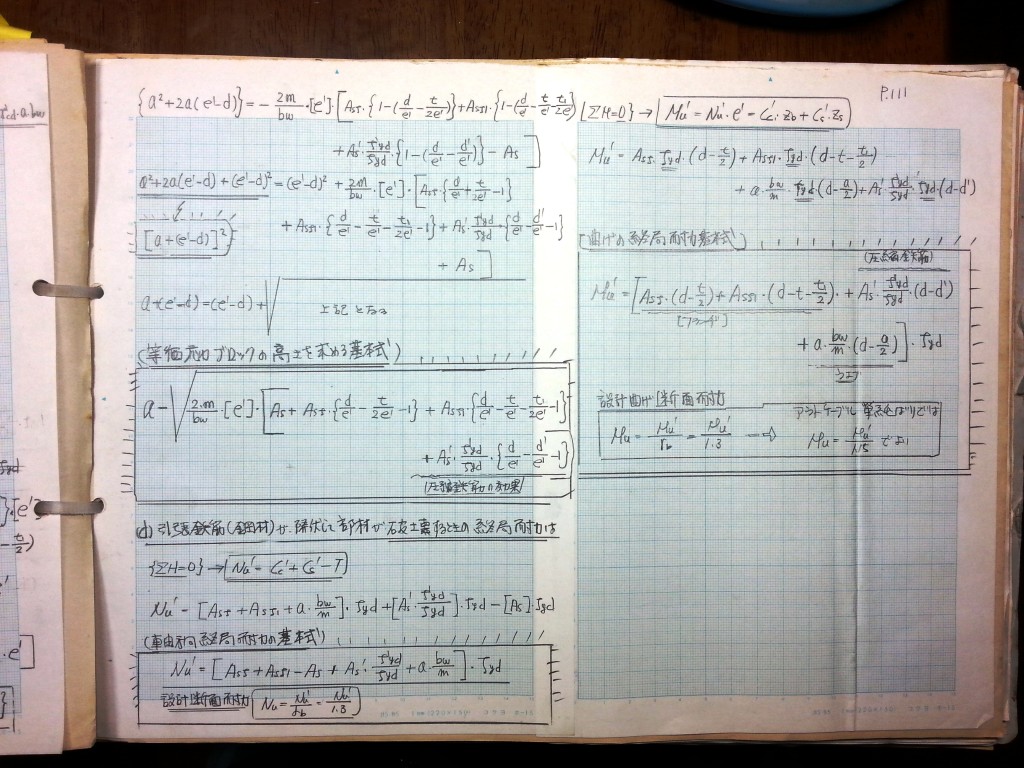 P.111
{a²+2a(e'-d)} = -2m/bw・[e']・[Asf・{1-(d/e'-t/2e')}+Asf1・{1-(d/e'-t/e'-t1/2e')}
+As'・f'yd/fyd・{1-(d/e'-d'/e')}-As]
a²+2a(e'-d)+(e'-d)²=(e'-d)²+2m/bw・[e']・[Asf{d/e'+t/2e'-1}
[a+(e'-d)]²
+Asf1・{d/e'-t/e'-t1/2e'-1}+As'・f'yd/fyd・{d/e'-d'/e'-1}
+As]
a+(e'-d)=(e'-d)+√ 上記となる
(等価応力ブロックの高さを求める基本式)
a-√2・m/bw・[e']・[As+Asf・{d/e'-t/2e'-1}+Asf1・{d/e'-t/e'-t1/2e'-1}
+As'・f'yd/fyd・{d/e'-d'/e'-1}]
(圧縮鉄筋の効果)
(d) 引張鉄筋(鋼材)が、降伏して部材が破壊するときの終局耐力は
{ΣH=0}→(Nu'=Cc'+Cs'-T)
Nu'=[Asf+Asf1+a・bw/m]・fyd+[As'・f'yd/fyd]・fyd-[As]・fyd
(軸方向終局耐力の基本式)
Nu'=[Asf+Asf1-As+As'・f'yd/fyd+a・bw/m]・fyd
設計断面耐力 (Nu=Nu'/γb=Nu'/1.3)
[ΣM=0]→(Mu'=Nu'・e'=Cc'・Zb+Cs'・Zs)
Mu'=Asf・fyd・(d-t/2)+Asf1・fyd・(d-t-t1/2)
+a・bw/m・fyd(d-a/2)+As'・f'yd/fyd・fyd・(d-d')
[曲げの終局耐力基本式]
(圧縮鉄筋)
Mu'=[Asf・(d-t/2)+Asf1・(d-t-t1/2)・+As'・f'yd/fyd・(d-d')
[フランヂ]
+a・bw/m・(d-a/2)]・fyd
設計曲げ断面耐力
Mu=Mu'/γb=Mu'/1.3 ⇒
Mu=Mu'/1.15 でよい